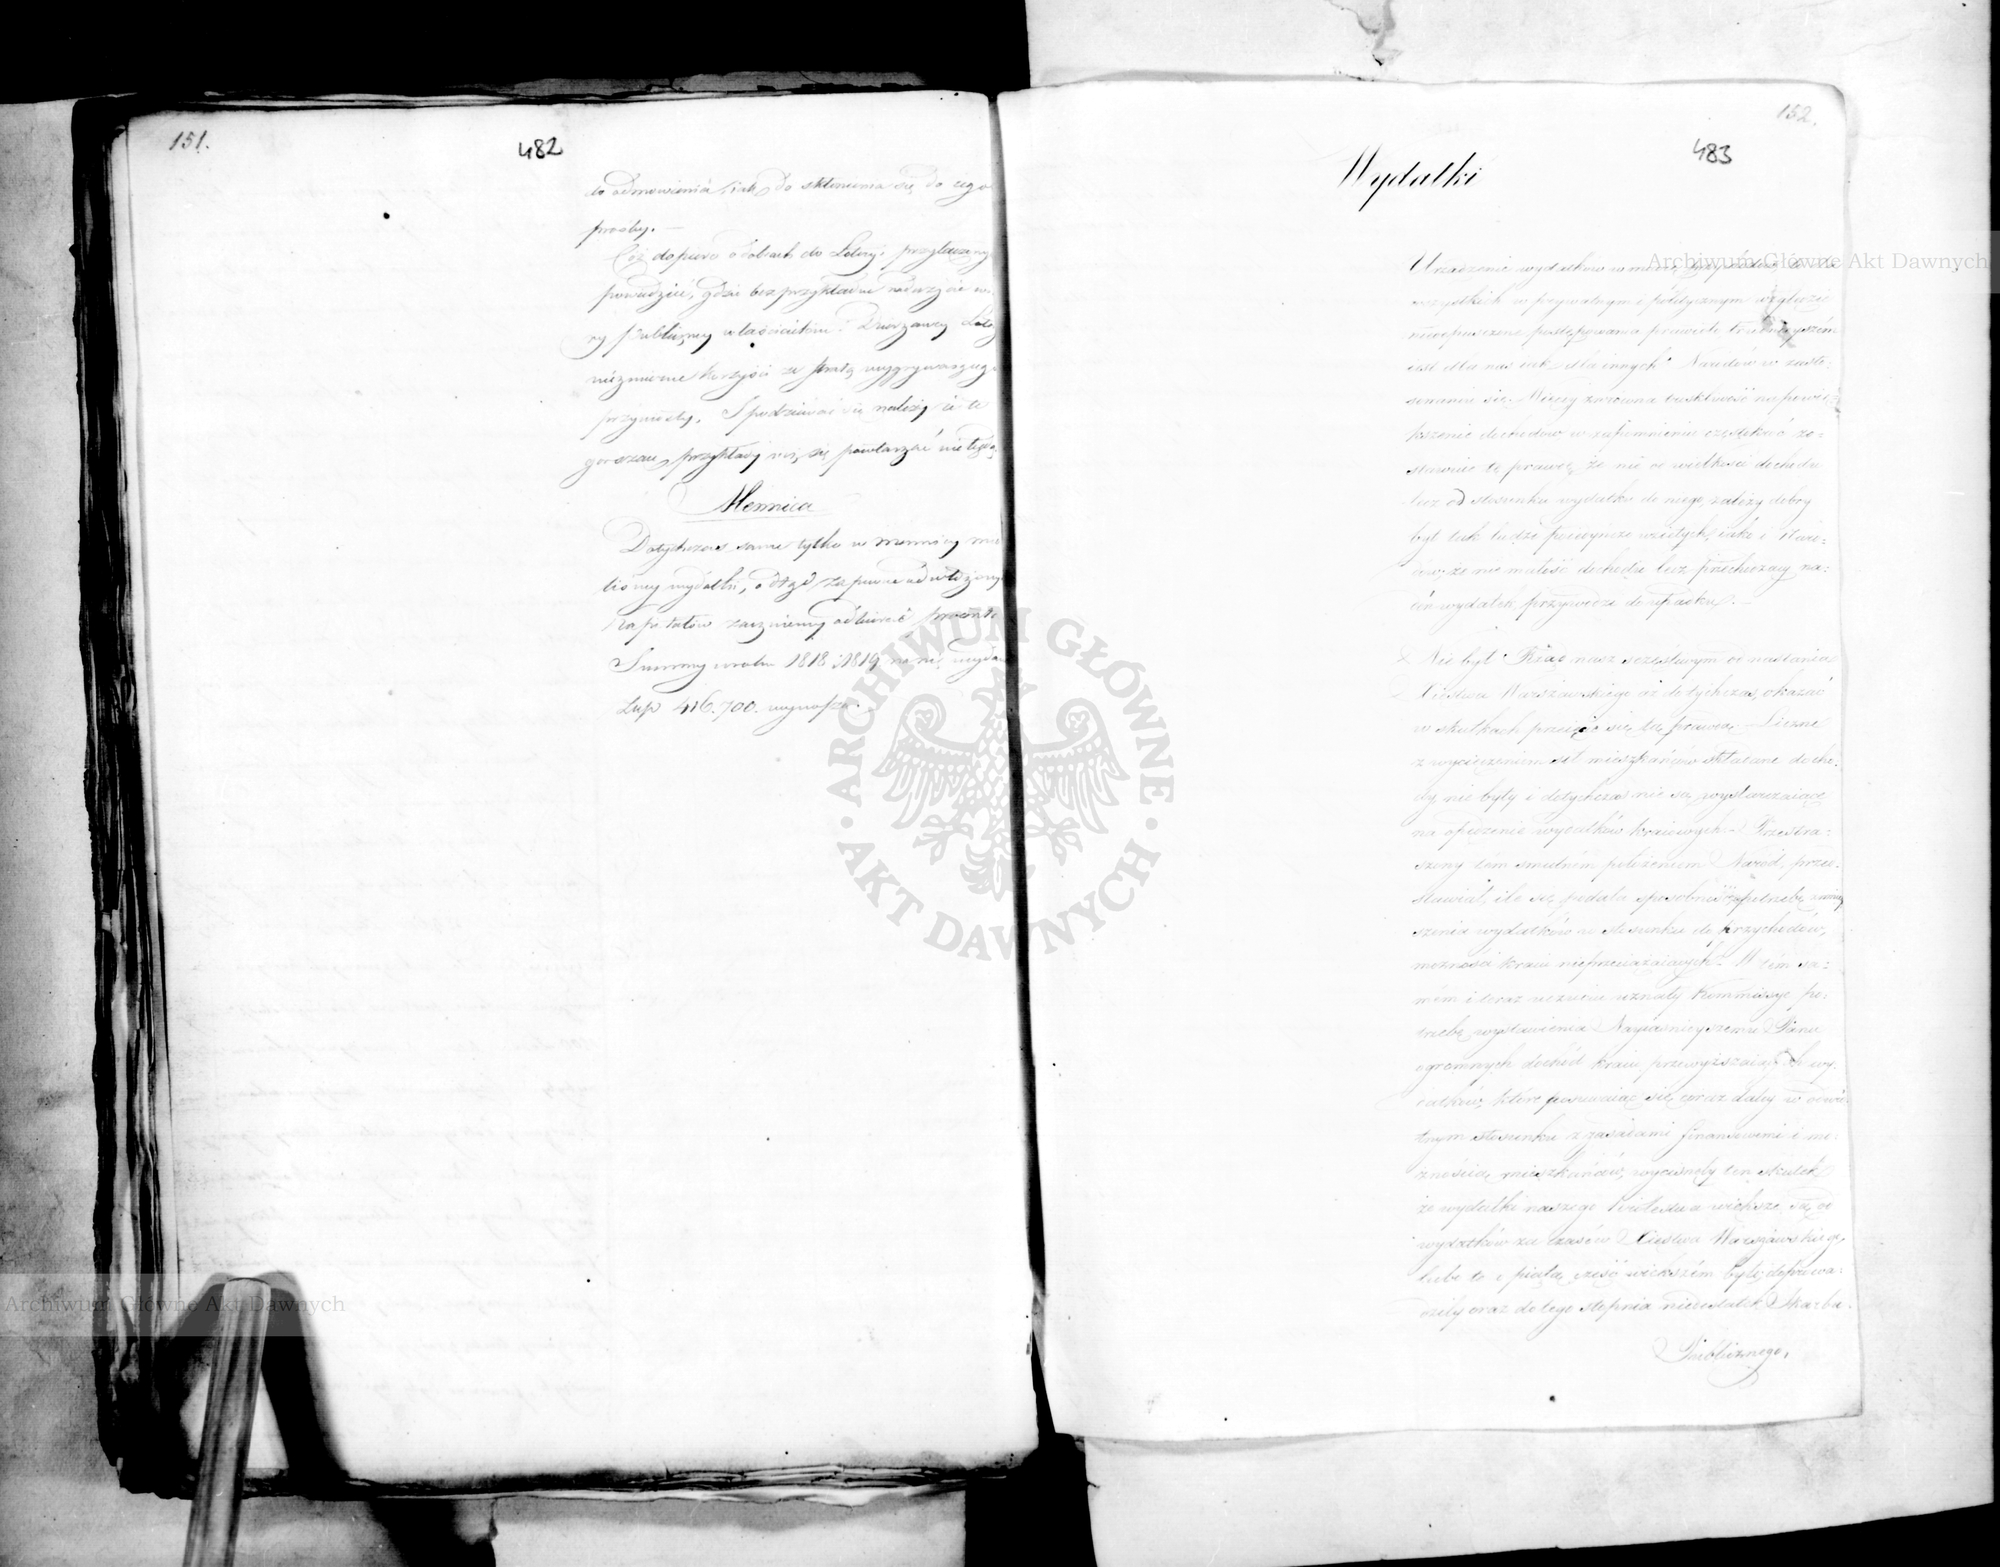 151.
482
do odmówienia, iak do skłonienia się do iego
prośby.—
Cóż dopiero o dobrach do Loteryi przyłączony
powiedzieć, gdzie bezprzykładne nadużycie wia-
ry Publiczney właścicielom i Dzierżawcy Lote
niezmierne korzyści ze stratą wygrywaiącego
przyniosły. Spodziewać się należy że te
gorszące przykłady się powtarzać nie będą.
Mennica
Dotychczas same tylko w mennicy mie
liśmy wydatki, odtąd zapewne od włożonych
Kapitałów zaczniemy odbierać procenta
Summy w roku 1818 i 1819 na nią wydane
złp 416.700. wynoszą.
152.
483
Wydatki
Urządzenie wydatków w miarę
wszystkich w prywatnym i politycznym względzie
postępowania prawideł
iest dla nas iak i dla innych Narodów w zasto-
sowaniu się. Więcey zwrócona troskliwość na powięk-
kszenie dochodów, w zapomnienie częstokroć zo-
stawuie tę prawdę, że nie od wielkości dochodu
lecz od stosunku wydatku do niego, zależy dobry
byt tak ludzi poiedyńczo wziętych, iako i Naro-
dów, że nie małość dochodu lecz przechodzący na-
deń wydatek, przywodzi do upadku.—
Nie był Rząd nasz szczęśliwym od nastania
Xięstwa Warszawskiego aż dotychczas, okazać
w skutkach przeięcie się tą prawdą.— Liczne
z wycieńczeniem sił mieszkańców składane docho-
dy, nie były i dotychczas nie są wystarczaiące
na opędzenie wydatków kraiowych.— Przestra-
szony tém smutném położeniem Naród, przed-
stawiał, ile się podała sposobność potrzebę zmniey
szenia wydatków w stosunku do przychodów,
możności kraiu nieprzeciążaiących.— W tém sa-
mém i teraz uczuciu uznały Kommissye po-
trzebę wystawienia Nayiaśnieyszemu Panu
ogromnych dochód kraiu przewyższaiących wy-
datków, które posuwaiąc się coraz daley w odwro-
tnym stosunku z zasadami finansowemi i mo-
żnością mieszkańców, wycisnęły ten skutek
że wydatki naszego Królestwa większe są od
wydatków za czasów Xięstwa Warszawskiego,
lubo te o piątą część większém było, doprowa-
dziły oraz do tego stopnia niedostatek Skarbu
Publicznego,
Archiwum Główne Akt Dawnych
Archiwum Główne Akt Dawnych
ARCHIWUM GŁÓWNE AKT DAWNYCH